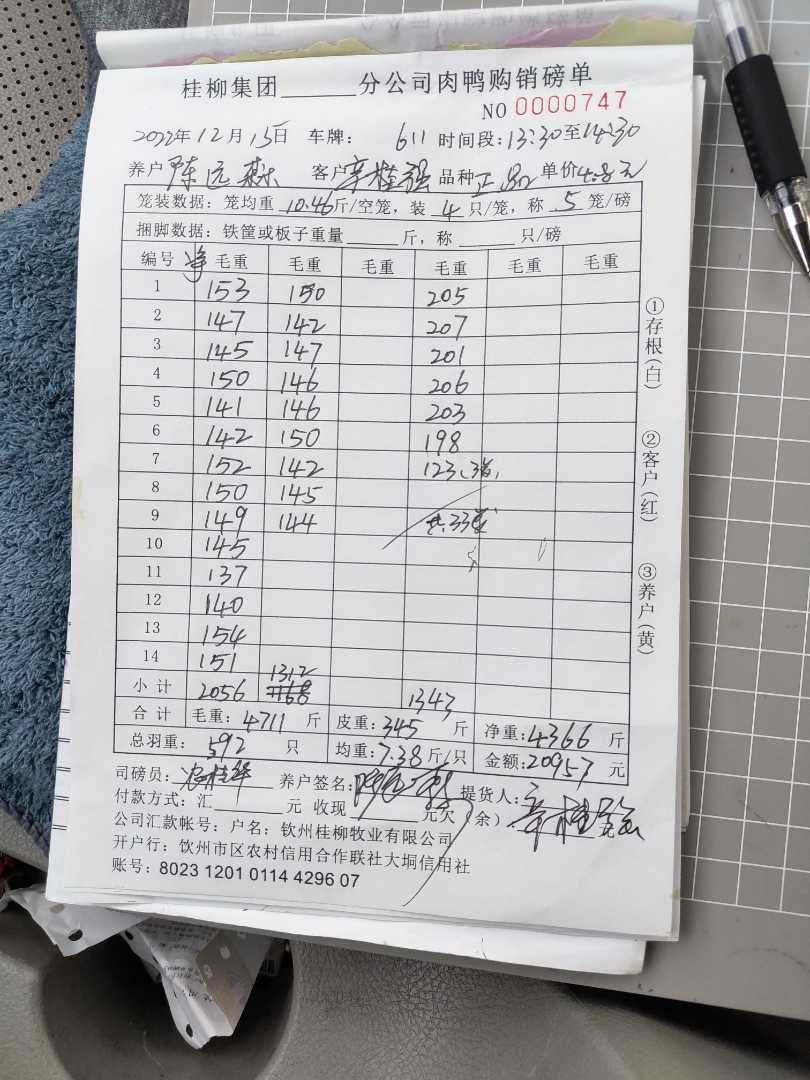 桂柳集团______分公司肉鸭购销磅单
NO 0000747
2022年12月15日 车牌: 611 时间段:13:30至14:30
养户 陈远 客户 辛桂强 品种 正品 单价4.8元
笼装数据: 笼均重 10.46斤/空笼, 装 4 只/笼, 称 5 笼/磅
捆脚数据: 铁筐或板子重量______斤, 称______只/磅
编号 净 毛重 毛重 毛重 毛重 毛重 毛重
1 153 150 205
2 147 142 207
3 145 147 201
4 150 146 206
5 141 146 203
6 142 150 198
7 152 142 123
8 150 145
9 149 144 共33
10 145
11 137
12 140
13 154
14 151
小计 2056 1312 1343
合计 毛重: 4711 斤 皮重: 345 斤 净重: 4366 斤
总羽重: 592 只 均重: 7.38 斤/只 金额: 20957 元
司磅员: 养户签名: 提货人:
付款方式: 汇______元 收现______元欠(余)
公司汇款帐号: 户名: 钦州桂柳牧业有限公司
开户行: 钦州市区农村信用合作联社大垌信用社
账号: 8023 1201 0114 4296 07
①存根(白)
②客户(红)
③养户(黄)